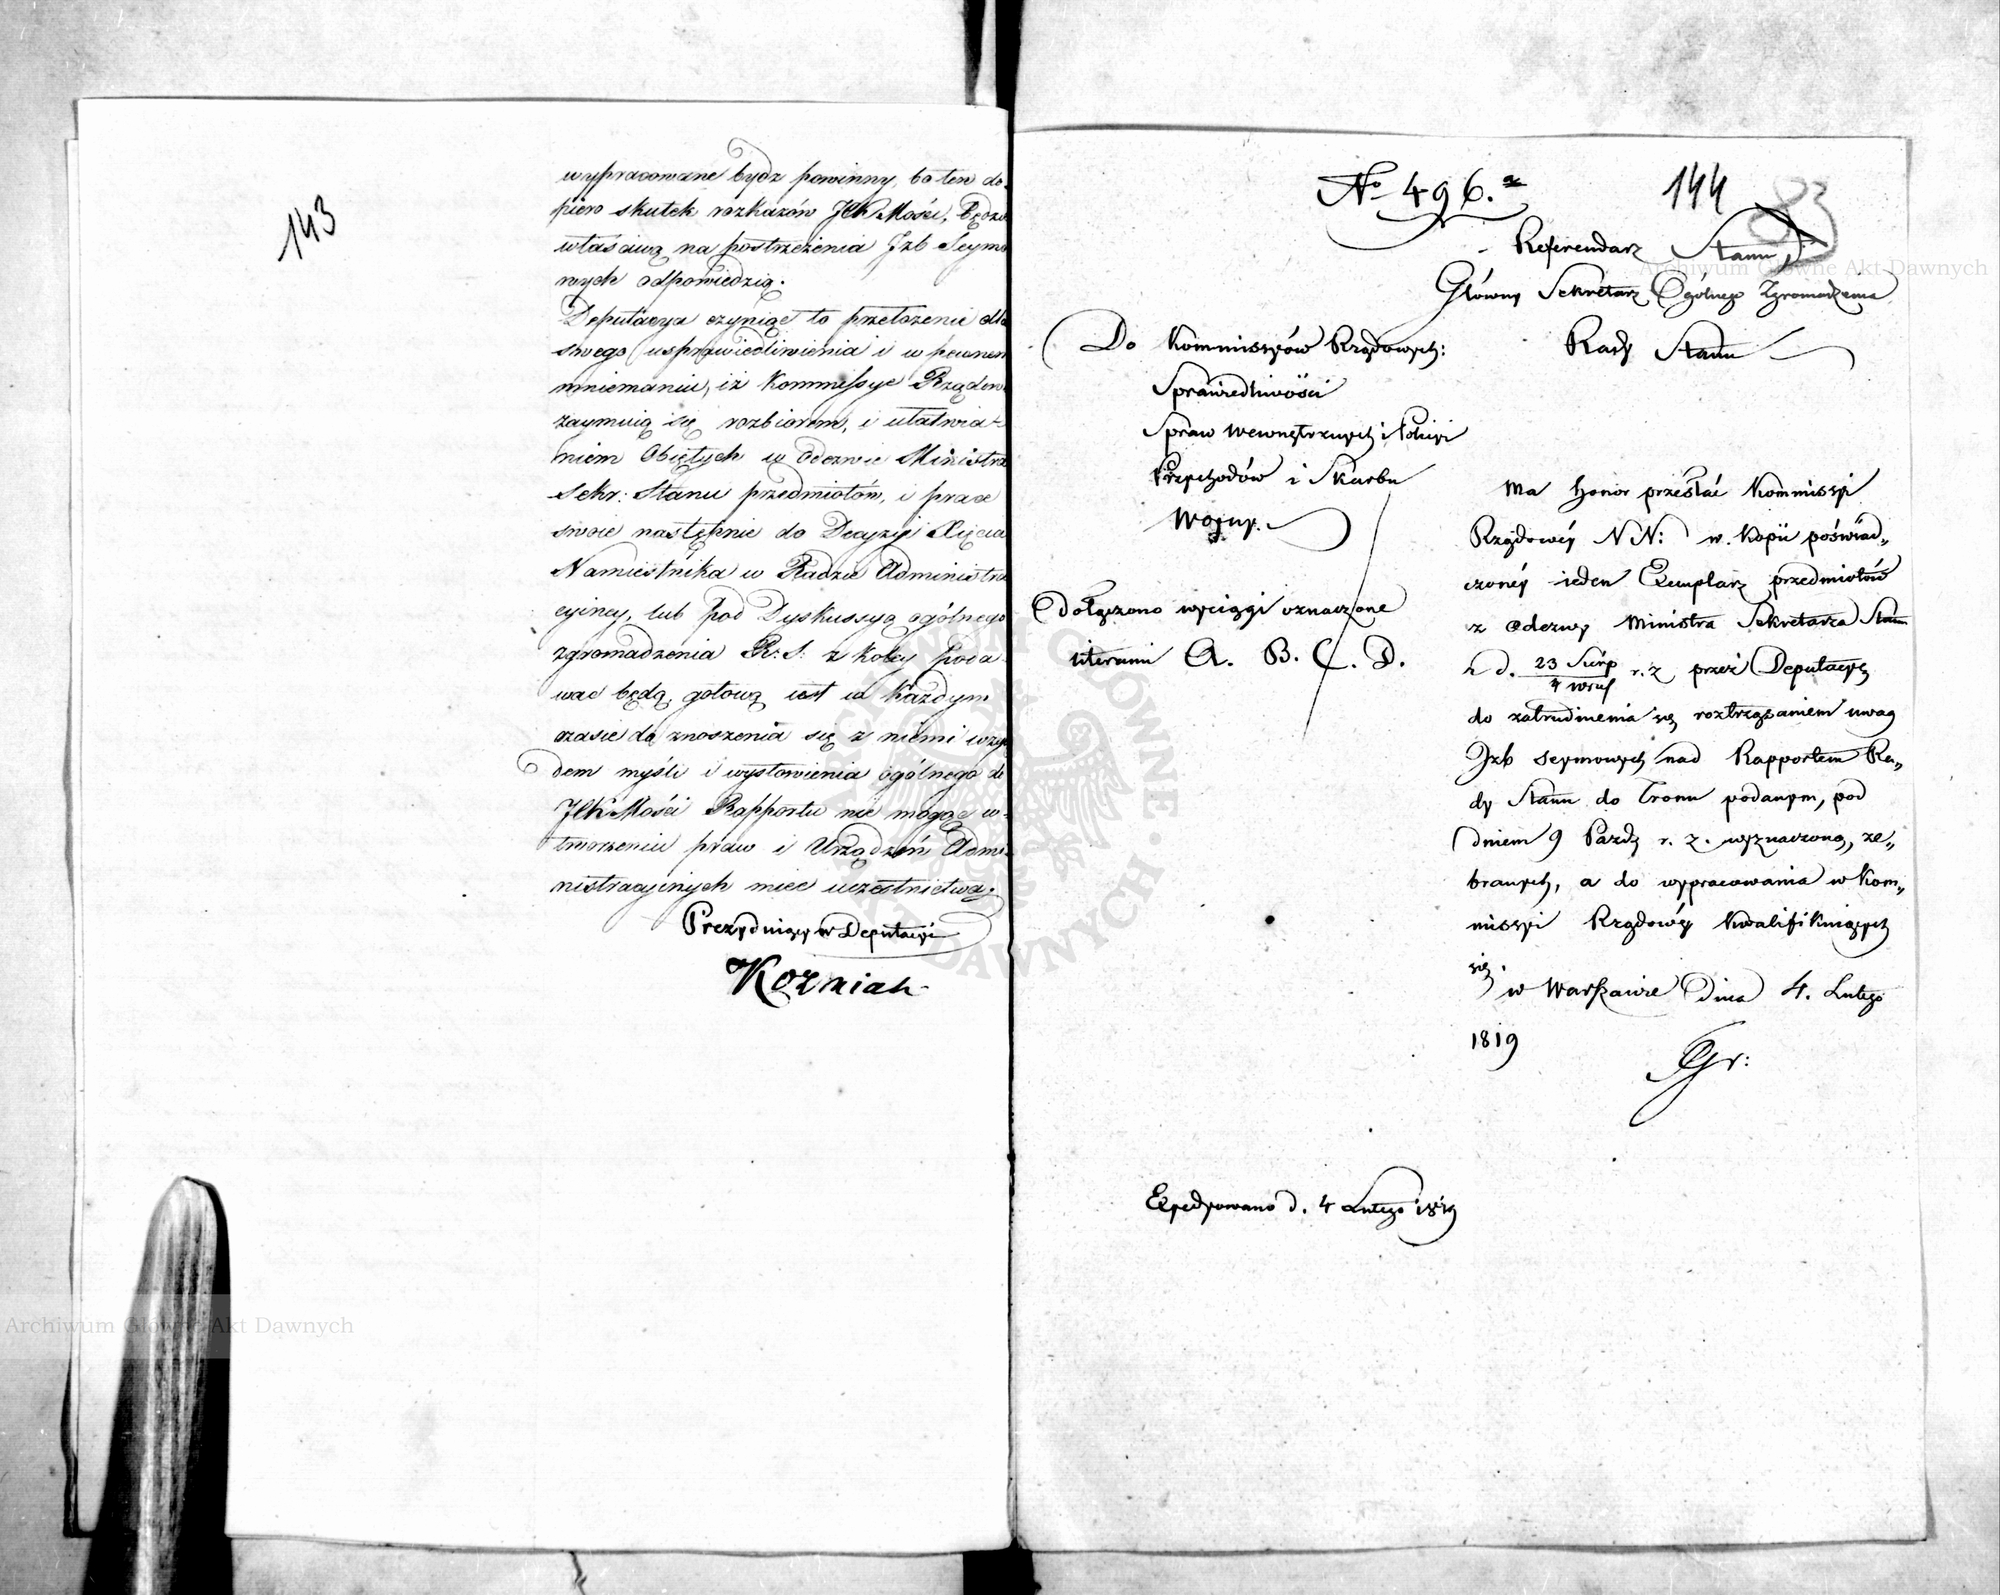 143
wypracowane bydź powinny, bo ten do-
piero skutek rozkazów JCK Mości, będzie
właściwą na postrzeżenia Izb Seymo
wych odpowiedzią.
Deputacya czyniąc to przełożenie dla
swego usprawiedliwienia i w pewnem
mniemaniu, iż Kommissye Rządow
zaymuią się rozbiorem, i ułatwia-
niem Obiętych w Odezwie Ministra
Sekr: Stanu przedmiotów, i prace
swoie następnie do Decyzyi Xięcia
Namiestnika w Radzie Administra
cyiney, lub pod Dyskussyą ogólnego
zgromadzenia R: S: z koley poda-
wać będą, gotową iest w każdym
czasie do znoszenia się z niemi wzglę
dem myśli i wystowienia ogólnego do
JCK Mości Rapportu nie mogąc w
tworzeniu praw i Urządzeń Admi-
nistracyinych mieć uczestnictwa.
Prezyduiący w Deputacyi
Kozmian
No 496.
144
83
Referendarz Stanu,
Główny Sekretarz Ogólnego Zgromadzenia
Rady Stanu
Do Kommissyów Rządowych:
Sprawiedliwości
Spraw Wewnętrznych i Policyi
Przychodów i Skarbu
Woyny.
Dołączono wyciągi oznaczone
literami A. B. C. D.
Ma honor przesłać Kommissyi
Rządowéy NN: w Kopii poświad„
czonéy ieden Exemplarz przedmiotów
z Odezwy Ministra Sekretarza Stanu
z d. 23 Sierp r. z. przez Deputacyą
4 Wrześ
do zatrudnienia się roztrząsaniem uwag
Izb Seymowych nad Rapportem Ra„
dy Stanu do Tronu podanym, pod
dniem 9 Paźdz r. z. wyznaczoną, ze„
branych, a do wypracowania w Kom„
missyi Rządowéy Kwalifikuiących
się.
w Warszawie dnia 4. Lutego
1819
Expedyowano d. 4 Lutego 1819
Archiwum Główne Akt Dawnych
Archiwum Główne Akt Dawnych